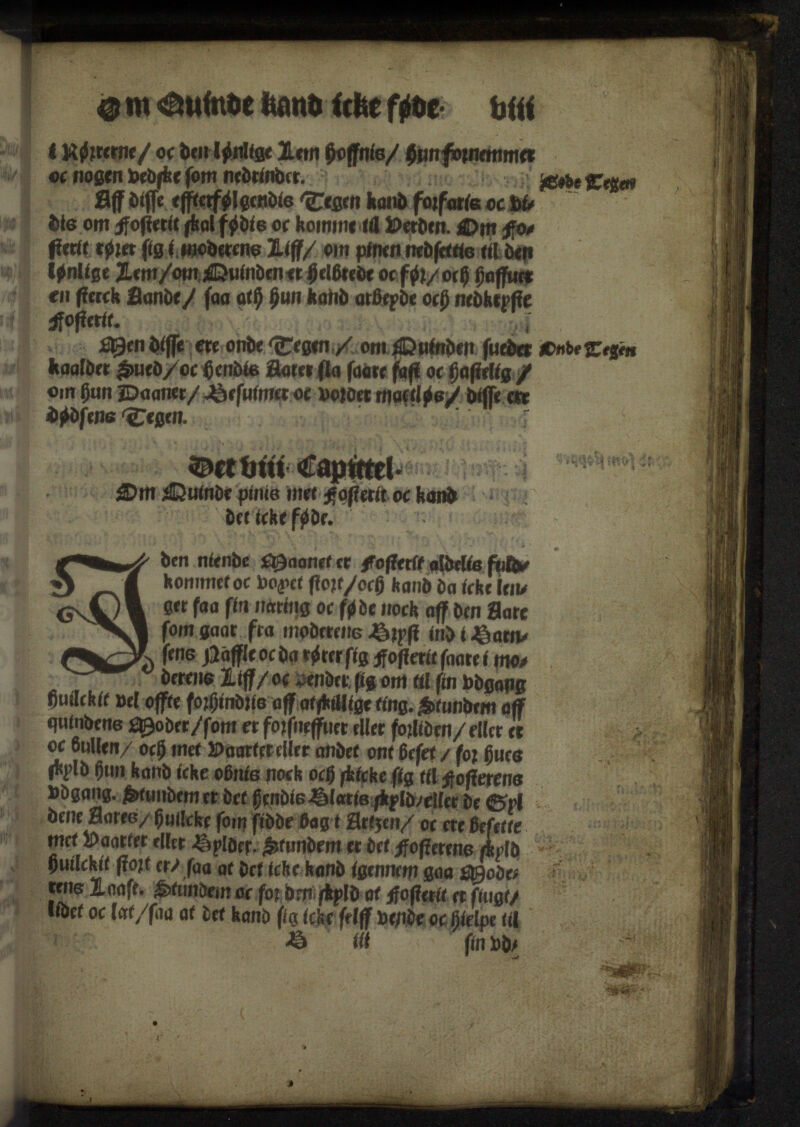 Om Quinde kand icke føde. viii
i Kørterne/ oc den lønlige Lem hoffnis/ hun fornemmer
oc nogen vedske som nedrinder.
Gode Tegen
Aff disse effterfølgendis Tegen kand forfaris oc vi-
dis om Fosterit skal fødis oc komme til Verden. Om Fo-
sterit rører sig i moderens Liff/ om pinen nedsettis til den
lønlige Lem/ om Quinden er helbrede oc før/ och haffuer
en sterck Aande/ saa ath hun kand arbeyde och nedkryste
Fosterit.
Men disse ere onde Tegen/ om Quinden sueder
Onde Tegen
kaalder Sued/ oc hendis Aarer sla saare fast oc hastelig/
om hun Daaner/ Besuimer oc vorder mactløs/ disse ere
dødsens Tegen.
Det viii Capittel.
Om Quinde pinis met Fosterit oc kand
det icke føde.
den niende Maanet er Fosterit aldelis fuld-
kommet oc voxet stort/ och kand da icke len-
ger faa sin næring oc føde nock aff den Aare
som gaar fra moderens Bryst ind i Barn-
sens Naffle oc da rører sig Fosterit saare i mo-
derens Liff/ oc vender sig om til sin vdgang
huilckit vel offte forhindris aff atskillige ting. Stundem aff
quindens Moder/ som er forsneffuer eller forliden/ eller er
oc bullen/ och met Vaarter eller andet ont beset/ for hues
skyld hun kand icke obnis nock och skicke sig til Fosterens
vdgang. Stundem er det hendis Blæris skyld/ eller de Syl
dene Aares/ huilcke som sidde bag i Artzen/ oc ere besette
met Vaarter eller Bylder. Stundem er det Fosterens skyld
huilckit stort er/ saa at det icke kand igennem gaa Mode-
rens Laaft. Stundem oc for den skyld at Fosterit er siugt/
lidet oc læt/ saa at det kand sig icke selff vende oc hielpe til
B iii sin vd-